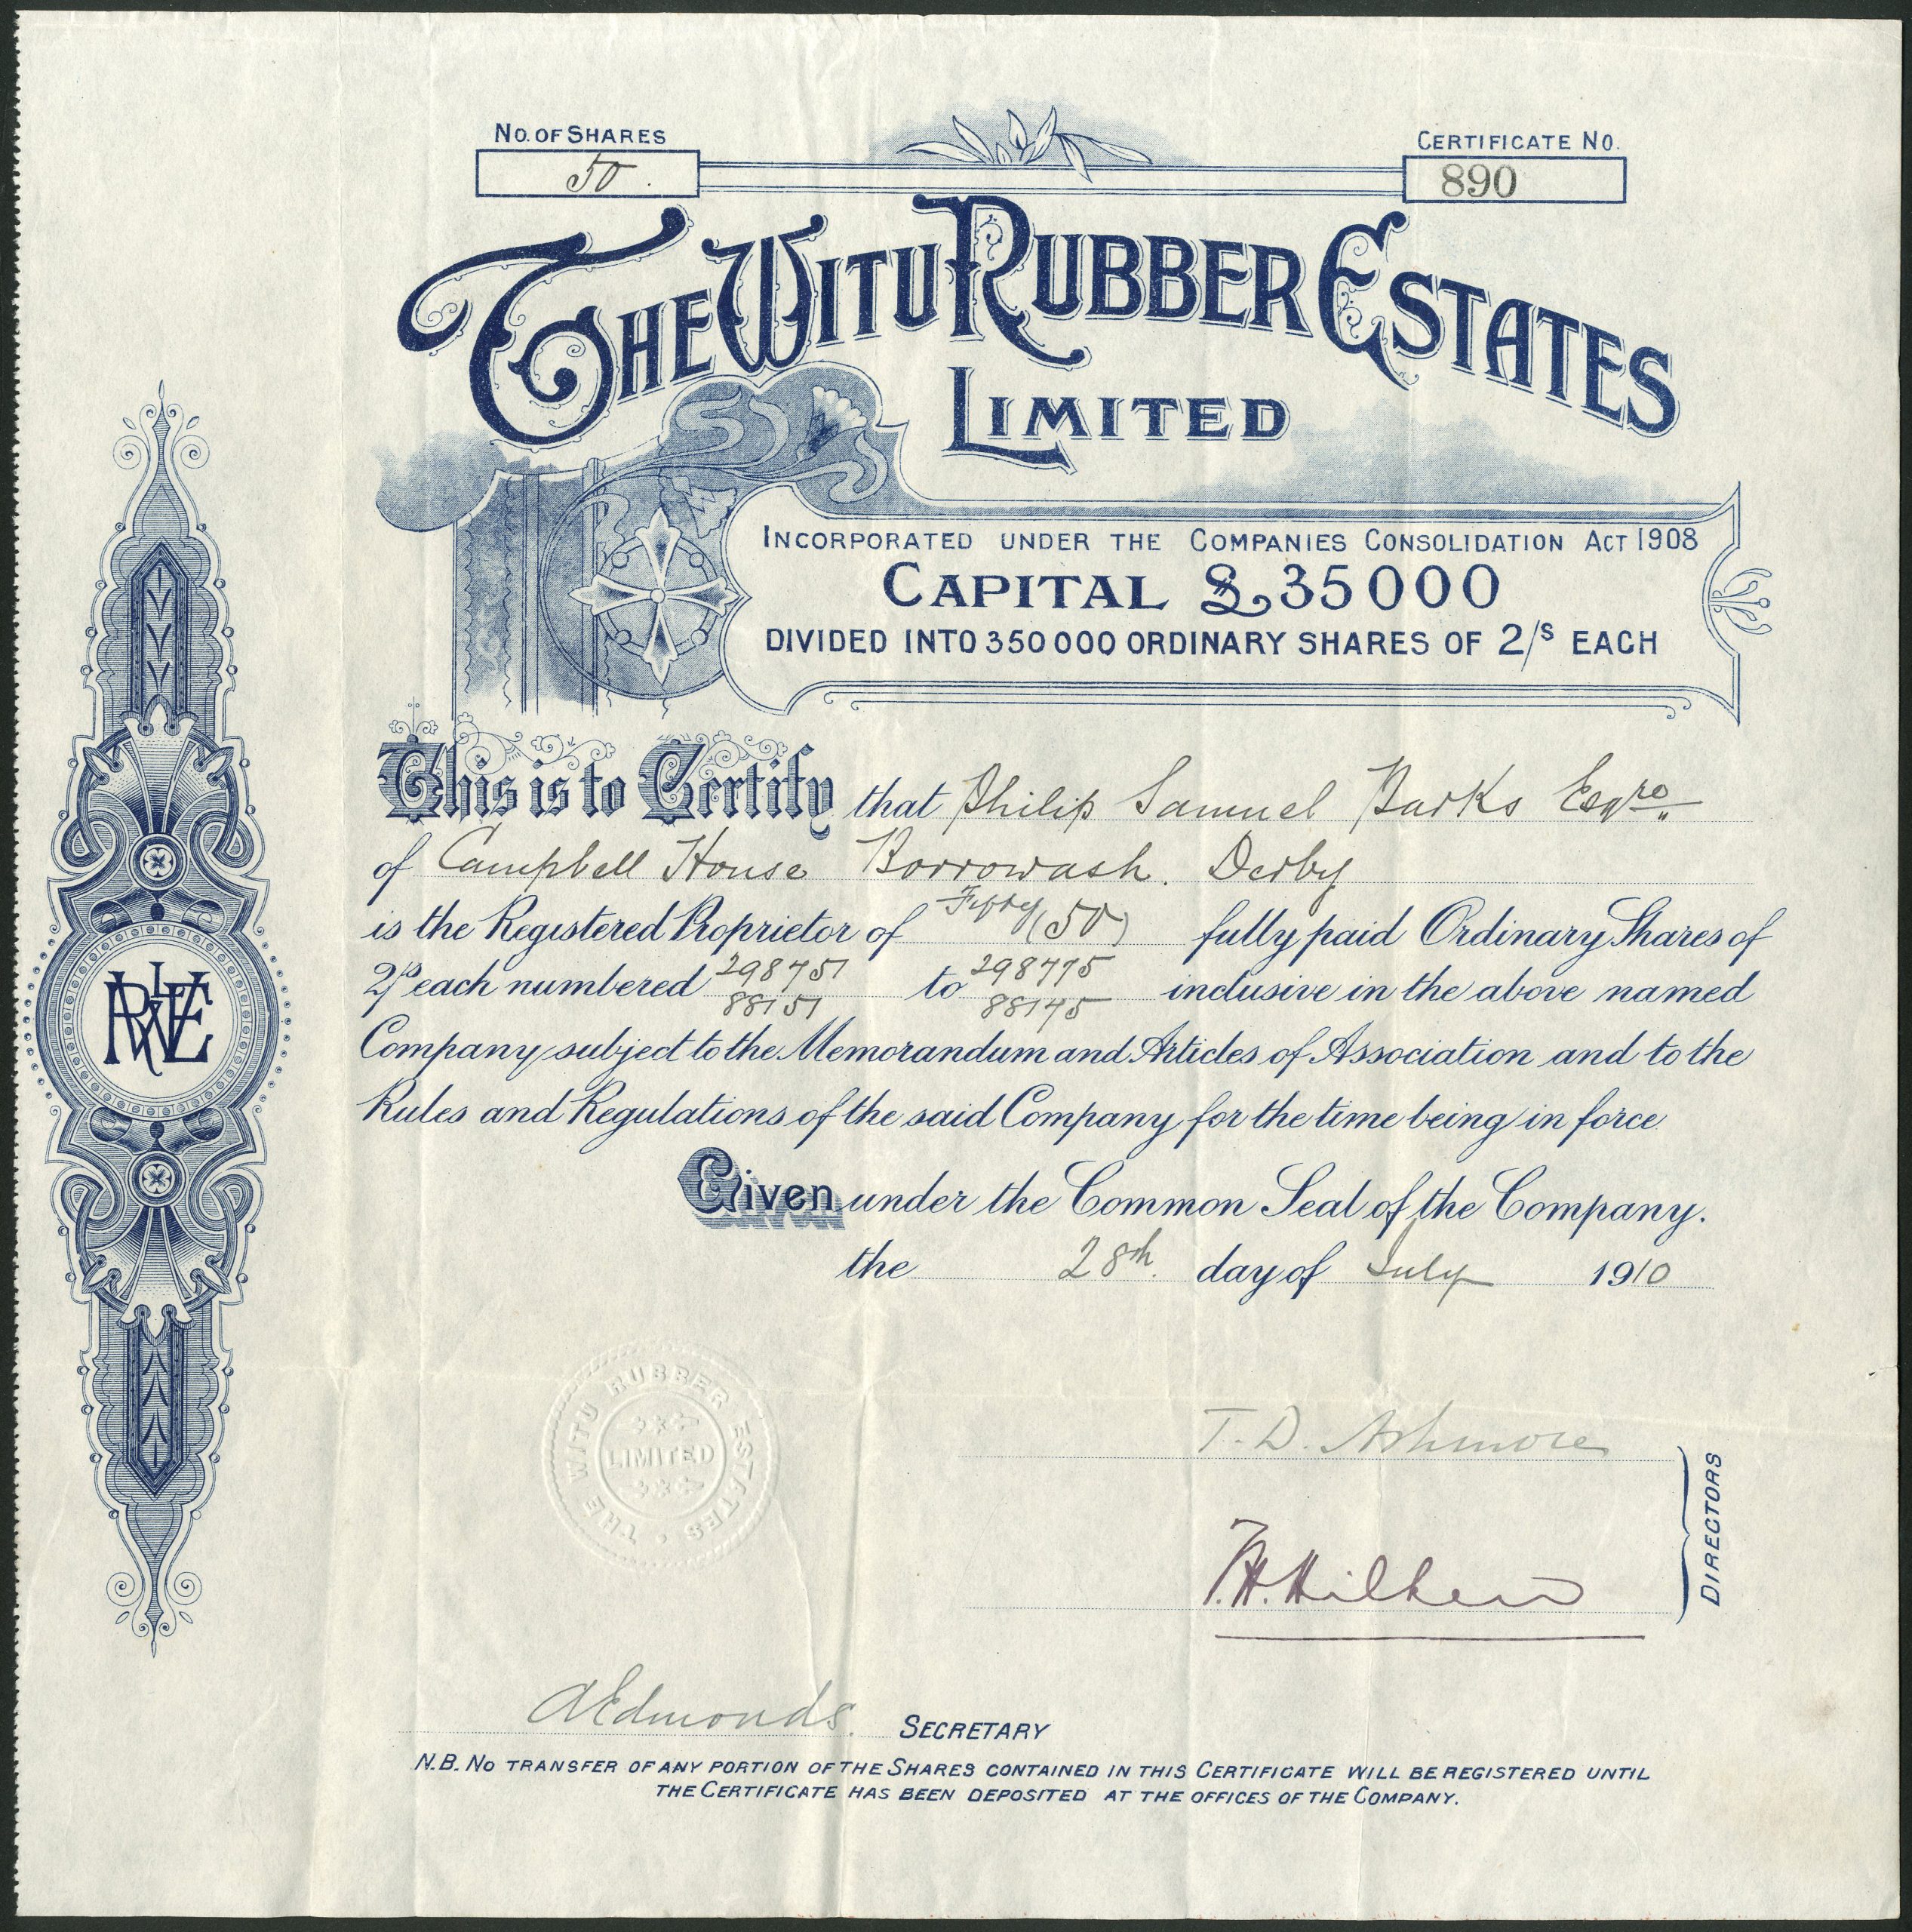 No. OF SHARES
50.
CERTIFICATE No.
890
THE WITU RUBBER ESTATES
LIMITED
INCORPORATED UNDER THE COMPANIES CONSOLIDATION ACT 1908
CAPITAL £35000
DIVIDED INTO 350000 ORDINARY SHARES OF 2/s EACH
This is to Certify that Philip Samuel Barks Esqre
of Campbell House Borrowash. Derby
is the Registered Proprietor of Fifty (50) fully paid Ordinary Shares of
2/s each numbered 298751 to 298775 inclusive in the above named
88151 88175
Company subject to the Memorandum and Articles of Association and to the
Rules and Regulations of the said Company for the time being in force
Given under the Common Seal of the Company.
the 28th. day of July 1910
THE WITU RUBBER ESTATES
LIMITED
T. D. Ashmore
H. Hilken
DIRECTORS
A Edmonds. SECRETARY
N.B. NO TRANSFER OF ANY PORTION OF THE SHARES CONTAINED IN THIS CERTIFICATE WILL BE REGISTERED UNTIL
THE CERTIFICATE HAS BEEN DEPOSITED AT THE OFFICES OF THE COMPANY.